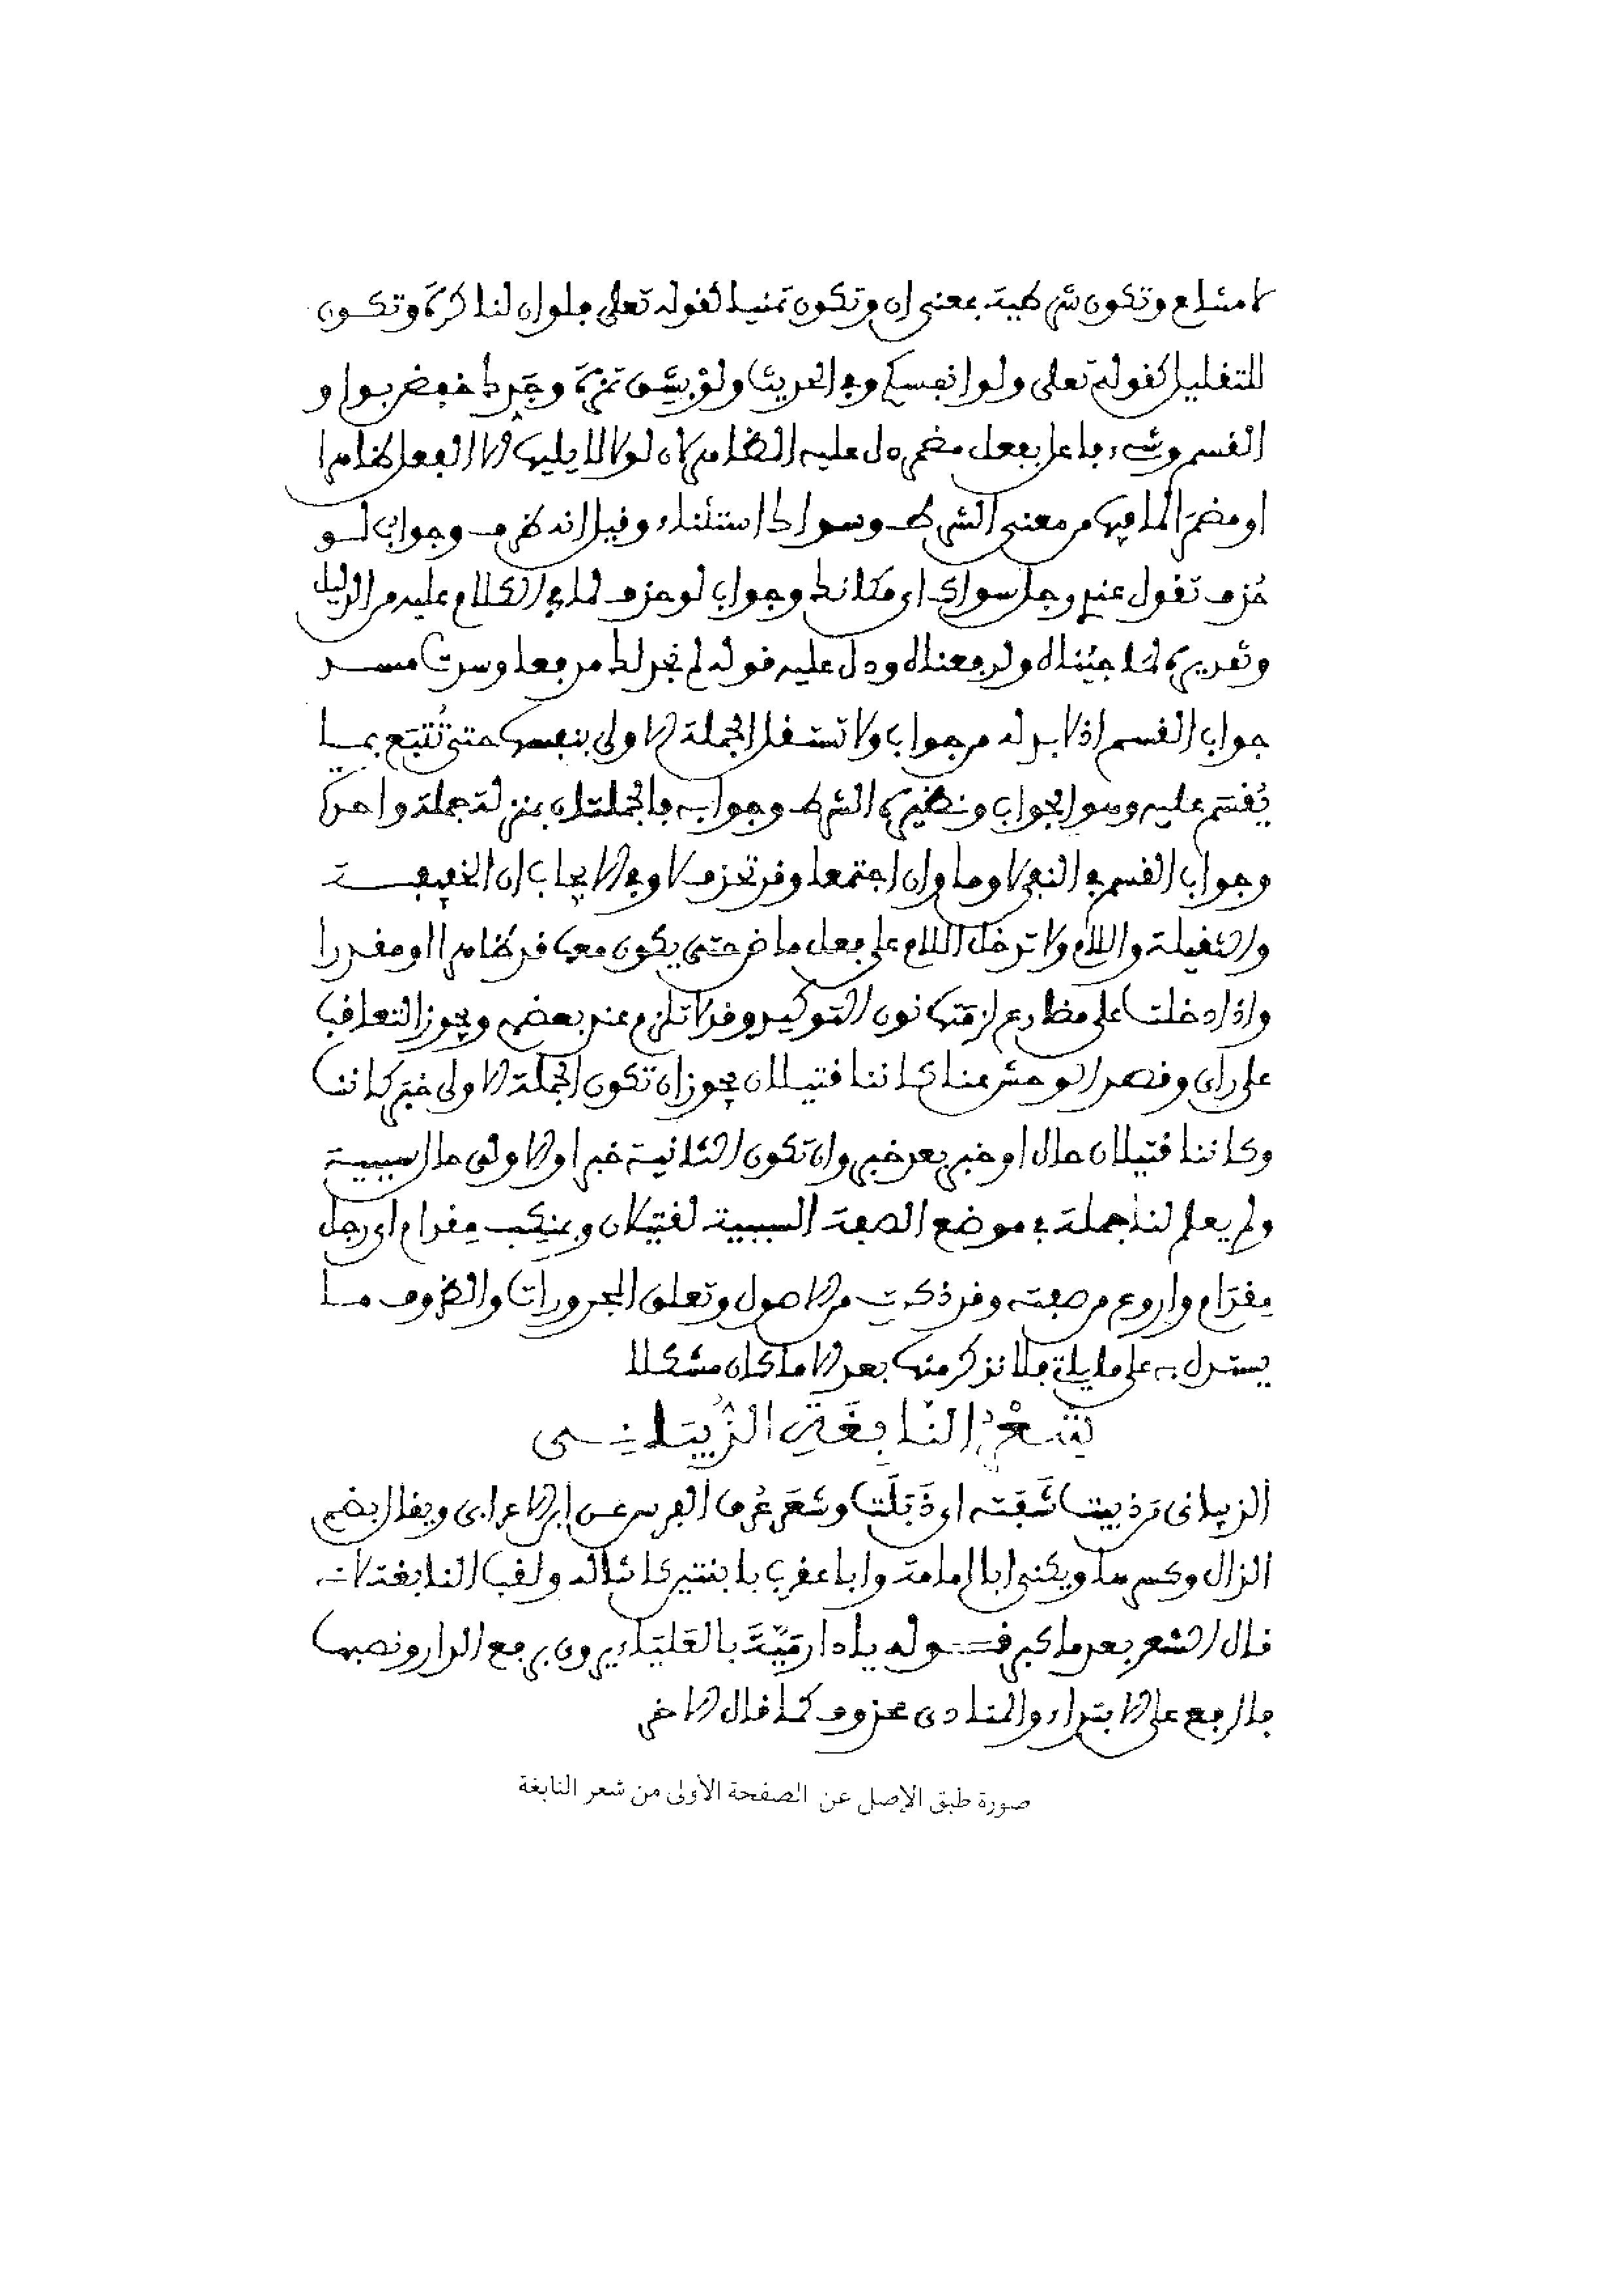 لامتناع وتكون شرطية بمعنى إن وتكون تمنيا كقوله تعلى فلو ان لنا كرة وتكون
للتقليل كقوله تعلى ولو انفسكم وفي الحديث ولو بشق تمرة وجدك خفض بواو
القسم وشيء فاعل بفعل مضمر دل عليه الظاهر لان لو لا يليها الا الفعل ظاهرا
او مضمرا لما فيها من معنى الشرط وسواك استثناء وقيل انه ظرف وجواب لو
حذف تقول عندي رجل سواك اي مكانك وجواب لو حذف لما في الكلام عليه من الدليل
وتقديره لما جئناه ولدفعناه ودل عليه قوله لم نجد لك مدفعا وسدت مسد
جواب القسم اذ لا بد له من جواب ولا تستقل الجملة الاولى بنفسها حتى تتبع بما
يقسم عليه وهو الجواب ونظيره الشرط وجوابه فالجملتان بمنزلة جملة واحدة
وجواب القسم في النفي لا وما وان اجتمعا وقد تحذف لا وفي الايجاب ان الخفيفة
والثقيلة واللام ولا تدخل اللام على فعل ماض حتى يكون معها قد ظاهرا او مقدرا
واذا دخلت على مضارع لزمتها نون التوكيد وقد لا تلزم عند بعضهم ويجوز التعاقب
على راي وقصد الوحش عنا كاننا قتيلان يجوز ان تكون الجملة الاولى خبر كاننا
وكاننا قتيلان حال او خبر بعد خبر وان تكون الثانية خبرا والاولى حال سببية
ولم يعلم لنا جملة في موضع الصفة السببية لقتيلان وبمنكب مقدام اي رجل
مقدام واروع من صفته وقد ذكرت من الاصول وتعلق المجرورات والظروف ما
يستدل به على ما يليه فلا نذكر منها بعد الا ما كان مشكلا
شعر النابغة الذبياني
الذبياني من ذبيت شفته اي ذبلت وشعر عرف الفرس عن ابن الاعرابي ويقال بضم
الذال وكسرها ويكنى ابا امامة وابا عقرب بابنتين كانتا له ولقب النابغة لانه
قال الشعر بعد ما كبر قوله يا دار مية بالعلياء يروى برفع الدار ونصبها
فالرفع على الابتداء والمنادى محذوف كما قال الاخر
صورة طبق الإصل عن الصفحة الأولى من شعر النابغة